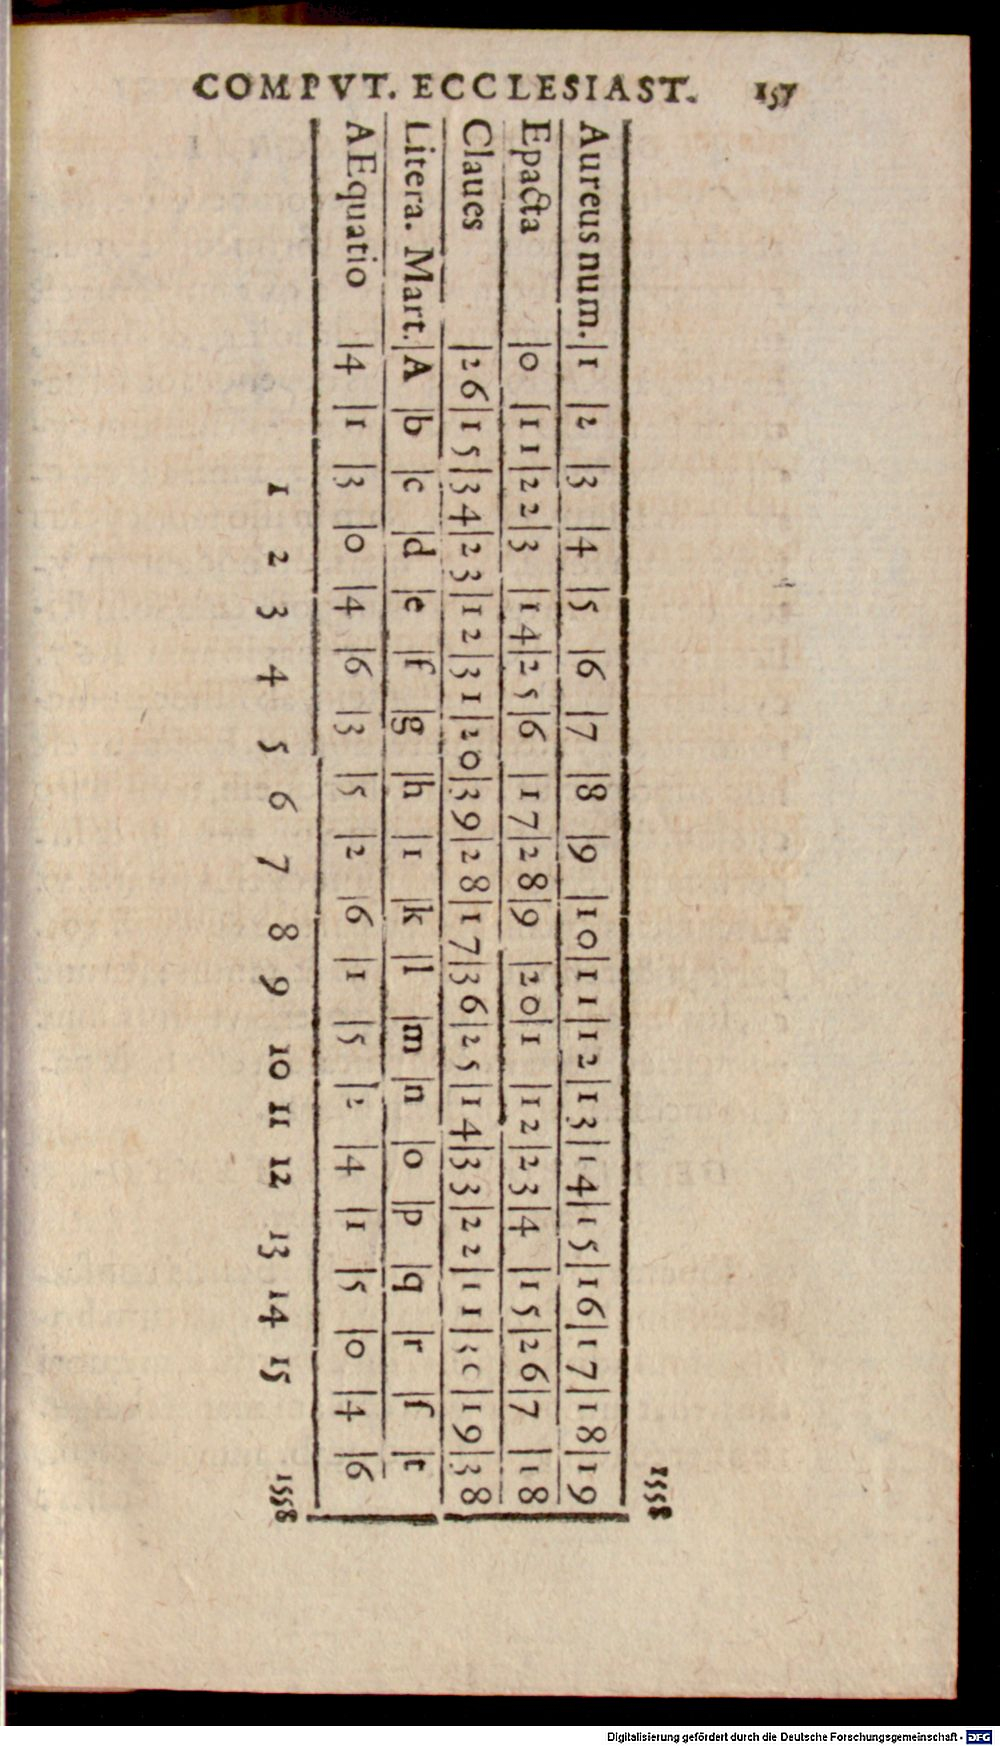 COMPVT. ECCLESIAST. 157
1558
Aureus num. |1 |2 |3 |4 |5 |6 |7 |8 |9 |10|11|12|13|14|15|16|17|18|19
Epacta |0 |11|22|3 |14|25|6 |17|28|9 |20|1 |12|23|4 |15|26|7 |18
Claues |26|15|34|23|12|31|20|39|28|17|36|25|14|33|22|11|30|19|38
Litera. Mart.|A |b |c |d |e |f |g |h |ı |k |l |m |n |o |p |q |r |ſ |t
AEquatio |4 |1 |3 |0 |4 |6 |3 |5 |2 |6 |1 |5 |2 |4 |1 |5 |0 |4 |6
1 2 3 4 5 6 7 8 9 10 11 12 13 14 15 1558
Digitalisierung gefördert durch die Deutsche Forschungsgemeinschaft - DFG